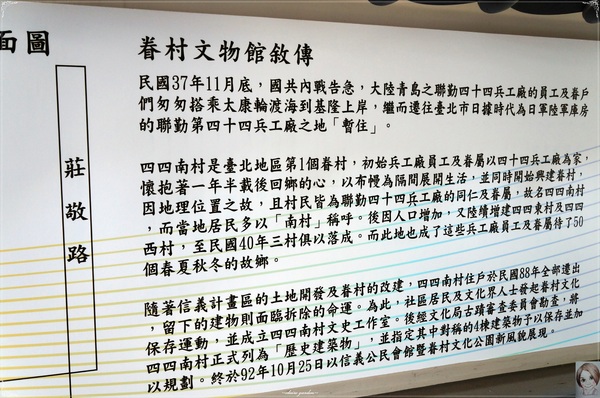 面圖
莊敬路
眷村文物館敘傳
民國37年11月底，國共內戰告急，大陸青島之聯勤四十四兵工廠的員工及眷戶
們匆匆搭乘太康輪渡海到基隆上岸，繼而遷往臺北市日據時代為日軍陸軍庫房
的聯勤第四十四兵工廠之地「暫住」。
四四南村是臺北地區第1個眷村，初始兵工廠員工及眷屬以四十四兵工廠為家，
懷抱著一年半載後回鄉的心，以布幔為隔間展開生活，並同時開始興建眷村，
因地理位置之故，且村民皆為聯勤四十四兵工廠的同仁及眷屬，故名四四南村
，而當地居民多以「南村」稱呼。後因人口增加，又陸續增建四四東村及四四
西村，至民國40年三村俱以落成。而此地也成了這些兵工廠員工及眷屬待了50
個春夏秋冬的故鄉。
隨著信義計畫區的土地開發及眷村的改建，四四南村住戶於民國88年全部遷出
，留下的建物則面臨拆除的命運。為此，社區居民及文化界人士發起眷村文化
保存運動，並成立四四南村文史工作室。後經文化局古蹟審查委員會勘查，將
四四南村正式列為「歷史建築物」，並指定其中對稱的4棟建築物予以保存並加
以規劃。終於92年10月25日以信義公民會館暨眷村文化公園新風貌展現。